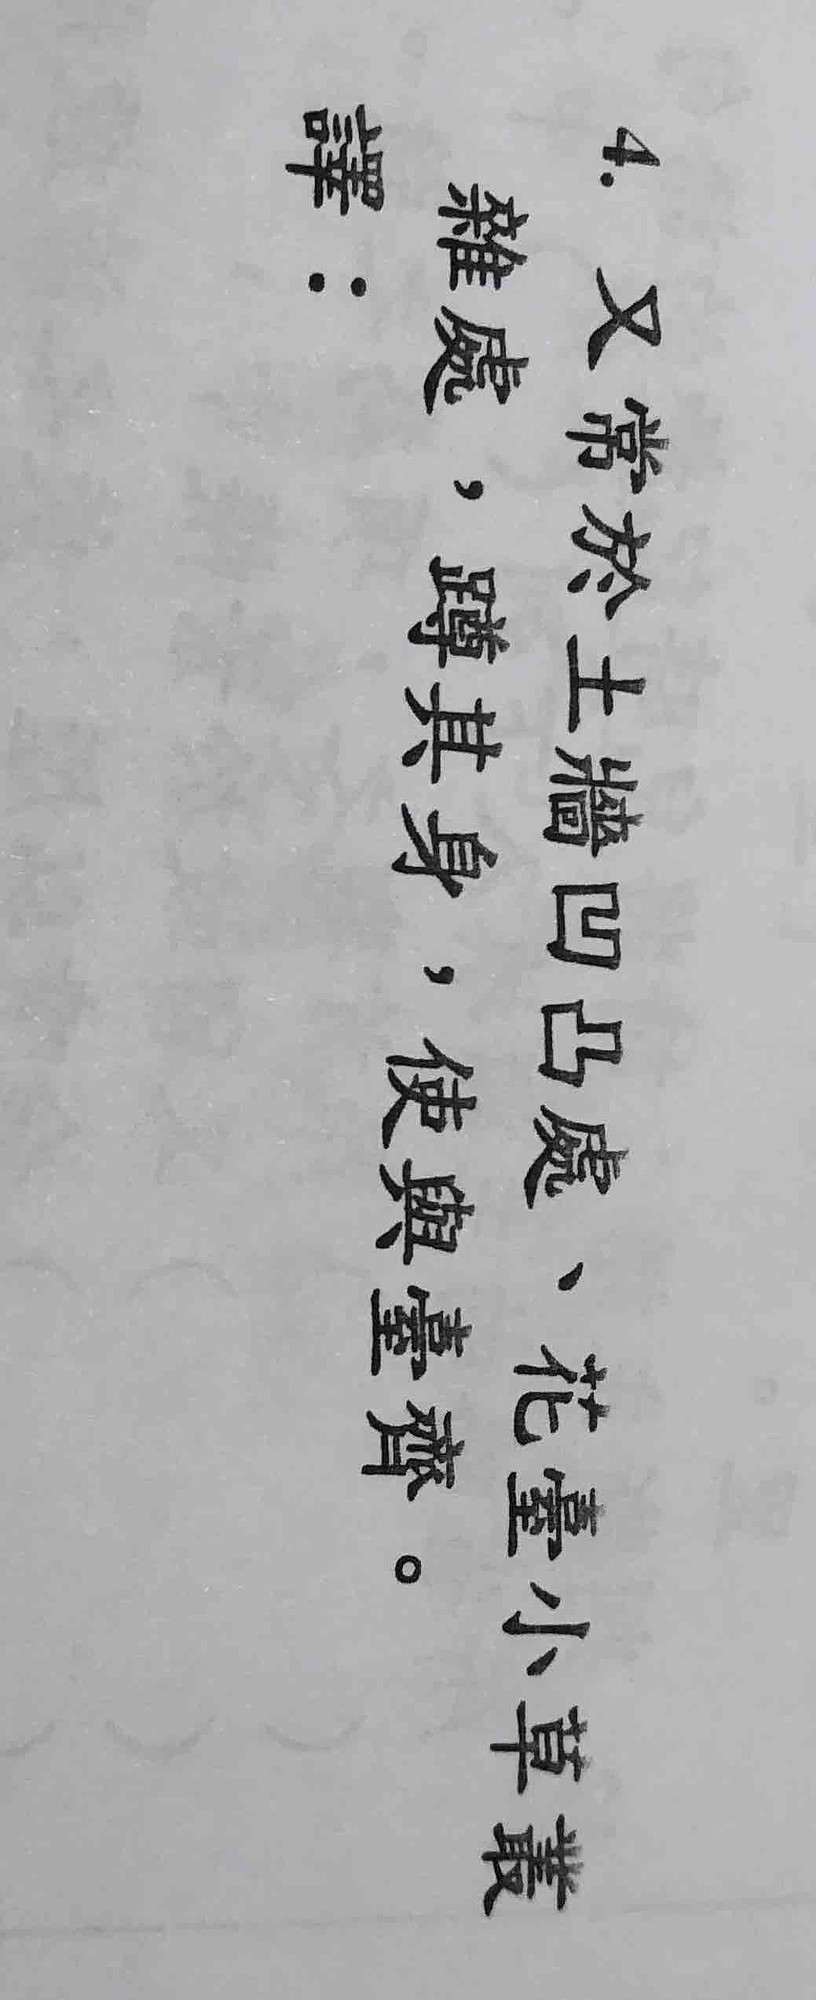 4. 又常於土牆凹凸處、花臺小草叢
雜處，蹲其身，使與臺齊。
譯：